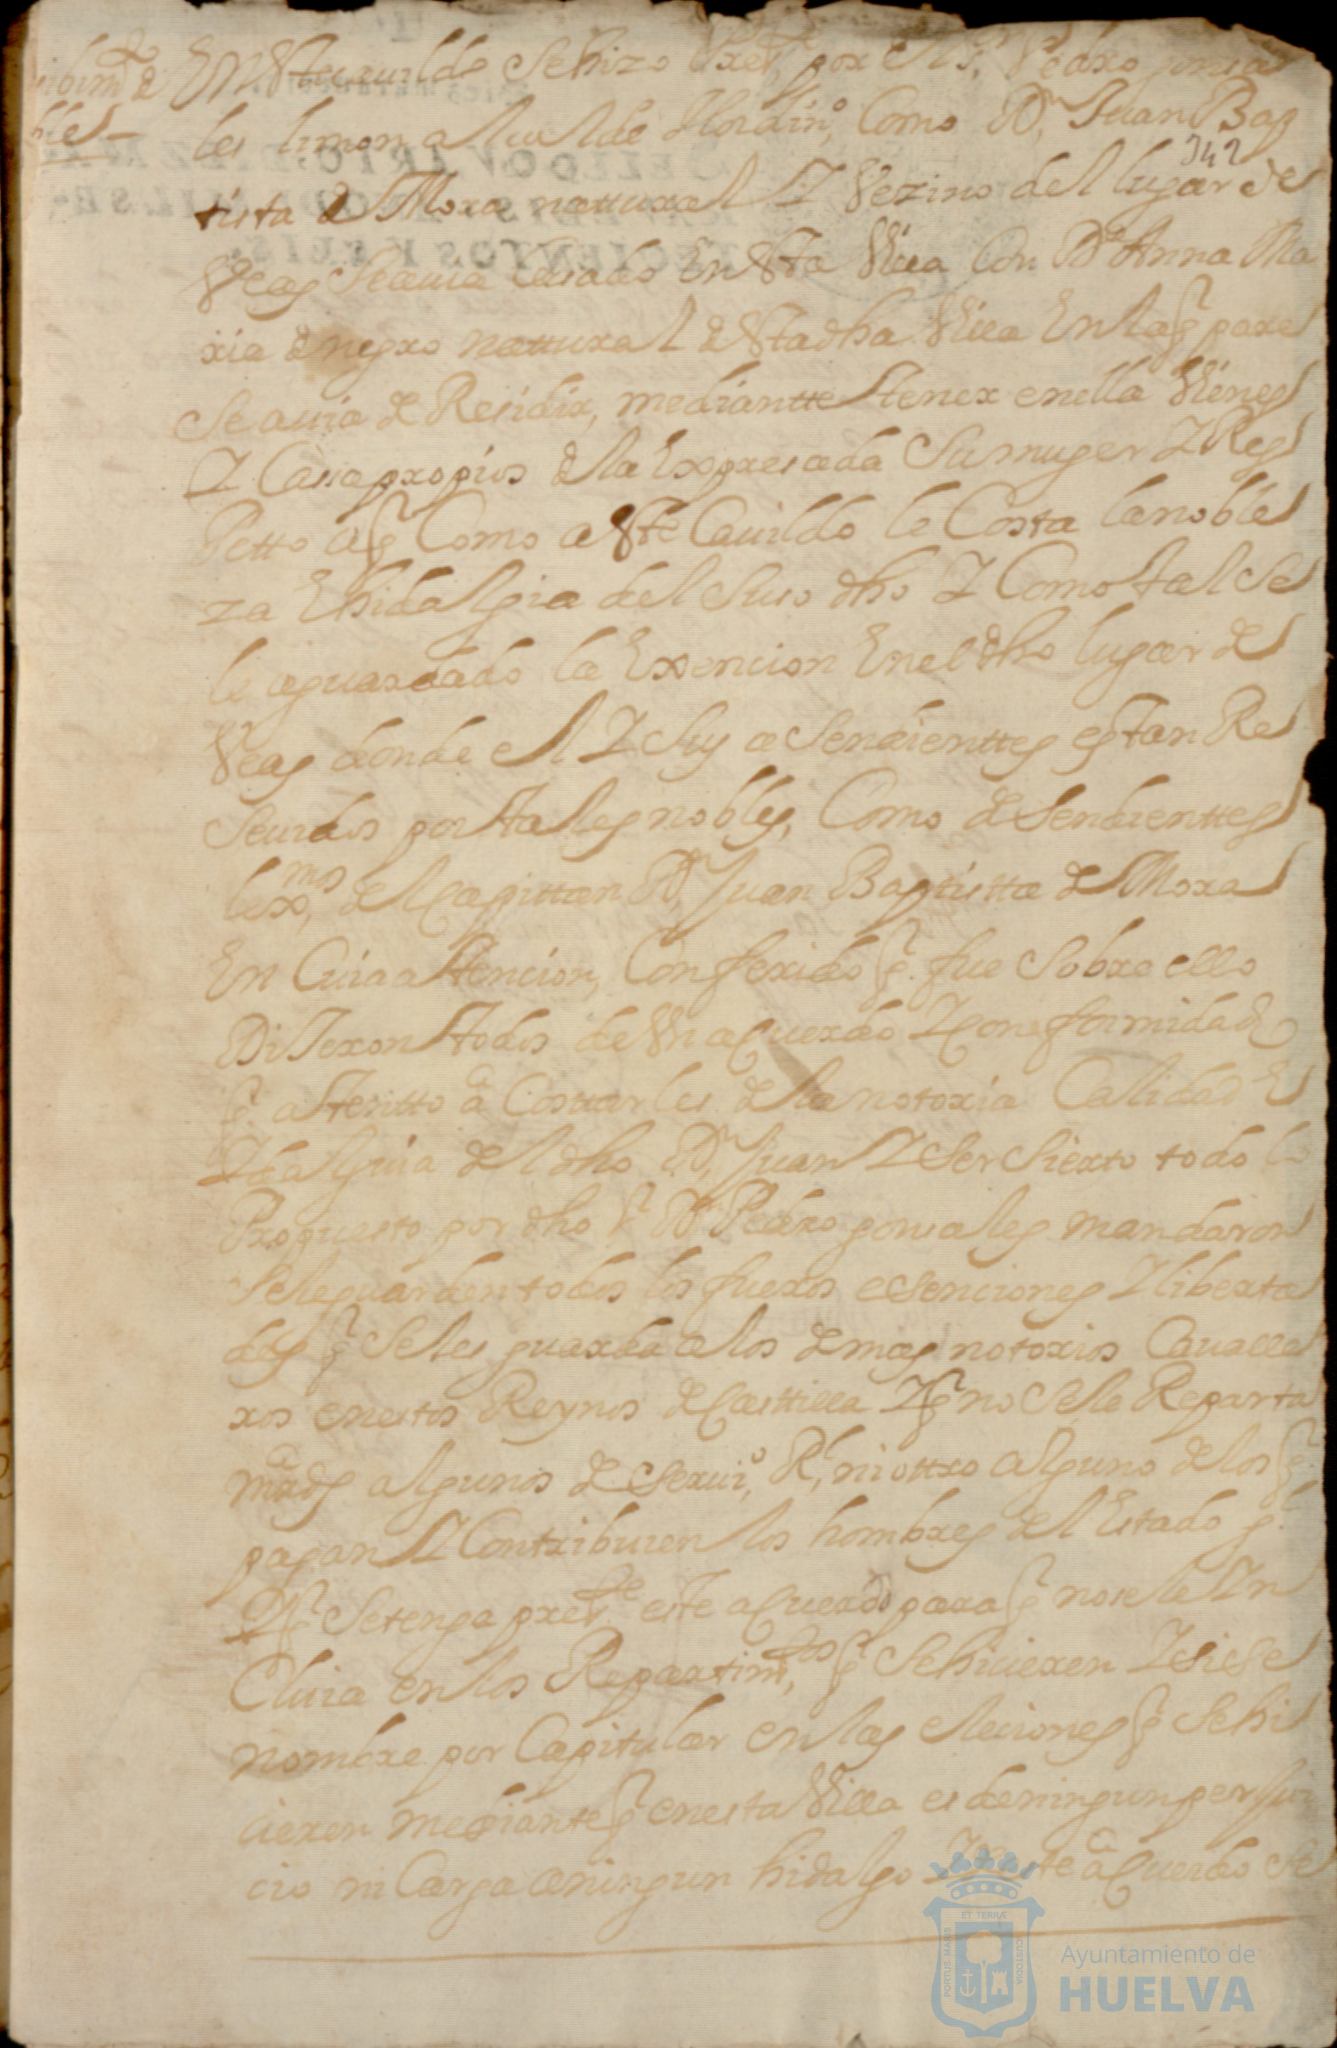 ribim.to de
bles
En Este cauildo Se hizo Pres.te por el S.r D.n Pedro gonsa
les limon alcalde Hordin.o, Como D.n Juan Bap
342
tista de Mora nattural Y Vezino del lugar de
Veas Se auia Casado En Esta Villa Con D.a Anna Ma
ria de negro nattural de Esta dha Villa En la q. pare
Se auia de Residir, mediantte tener en ella Vienes
Y Cassa propios de la Expresada Su muger Y Res
Petto a q. Como a Este Cauildo le Costa la noble
za E hidalgia del Suso dho Y Como tal Se
le a guardado la Exsencion En el dho lugar de
Veas donde el Y Sus asendienttes estan Re
Seuidos por tales nobles, Como desendienttes
lex.mos del Capittan D.n Juan Baptistta de Mora
En Cuia attencion, Conferido q. fue Sobre ello
DiJeron todos de Vn aCuerdo Y Conformidad
q. attentto a Costarles de la notoria Calidad E
Ydalguia del dho D.n Juan Y Ser Sierto todo lo
Propuesto por dho S.r D.n Pedro gonsales mandaron
Se le guarden todos los fueros esenciones Y liberta
des q. Se les guarda a los demas notorios Cavalle
ros en estos Reynos de Casttilla Y q. no Se le Reparta
mrds algunos de Serui.o R.l, ni ottro alguno de los q.
pagan Y Contribuien los hombres del Estado g.l
Y q. Se tenga pres.te este aCuerdo para q. no se le Yn
Cluia en los Repartim.tos q. Se hicieren Y Si Se
nombre por Capitular en las eleciones q. Se hi
cieren mediante q. en esta Villa es de ningun perJui
cio ni Carga a ningun hidalgo Y este aCuerdo Se
PORTUS MARIS
ET TERRÆ
CUSTODIA
Ayuntamiento de
HUELVA